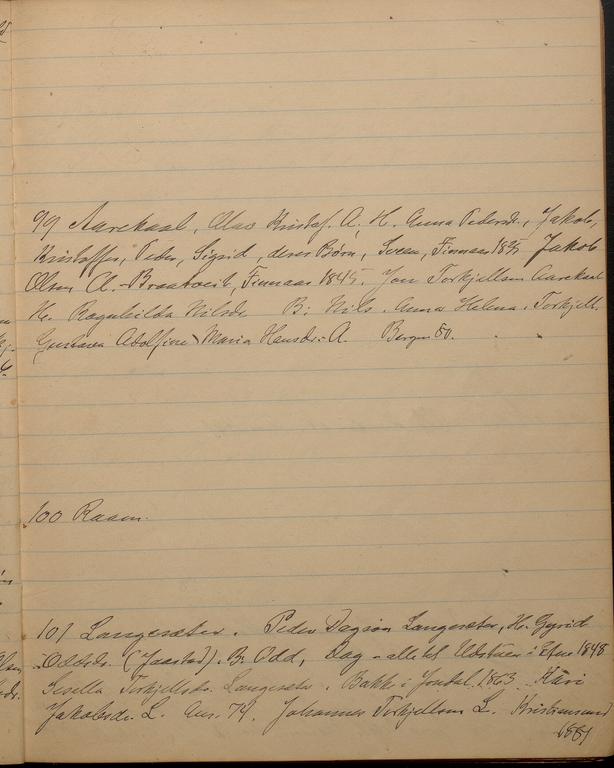 99 Aarekaal, Olav Kristof. A. H. Anna Pedersd., Jakob,
Kristoffer, Peder, Sigrid, deres Børn, Sveen, Finnaas 1835 Jakob
Olsen A. - Braatveit, Finnaas 1845. Jon Torkjellsen Aarekaal
H. Ragnhilda Nilsdr B: Nils. Anna Helena. Torkjell.
Gustava Adolfine) Maria Hansdr. A. Bergen 80.
100 Raaen.
101 Langesæter. Peder Dagson Langesæter, H. Gyrid
Oddsdr. (Jaastad). B: Odd, Dag - alle til i Etne 1848
Sesella Torkjellsdr. Langesæter. Bakke i Jondal. 1863. Kari
Jakobsdr. L. Am. 74. Johannes Torkjellsen L. Kristiansund
1881